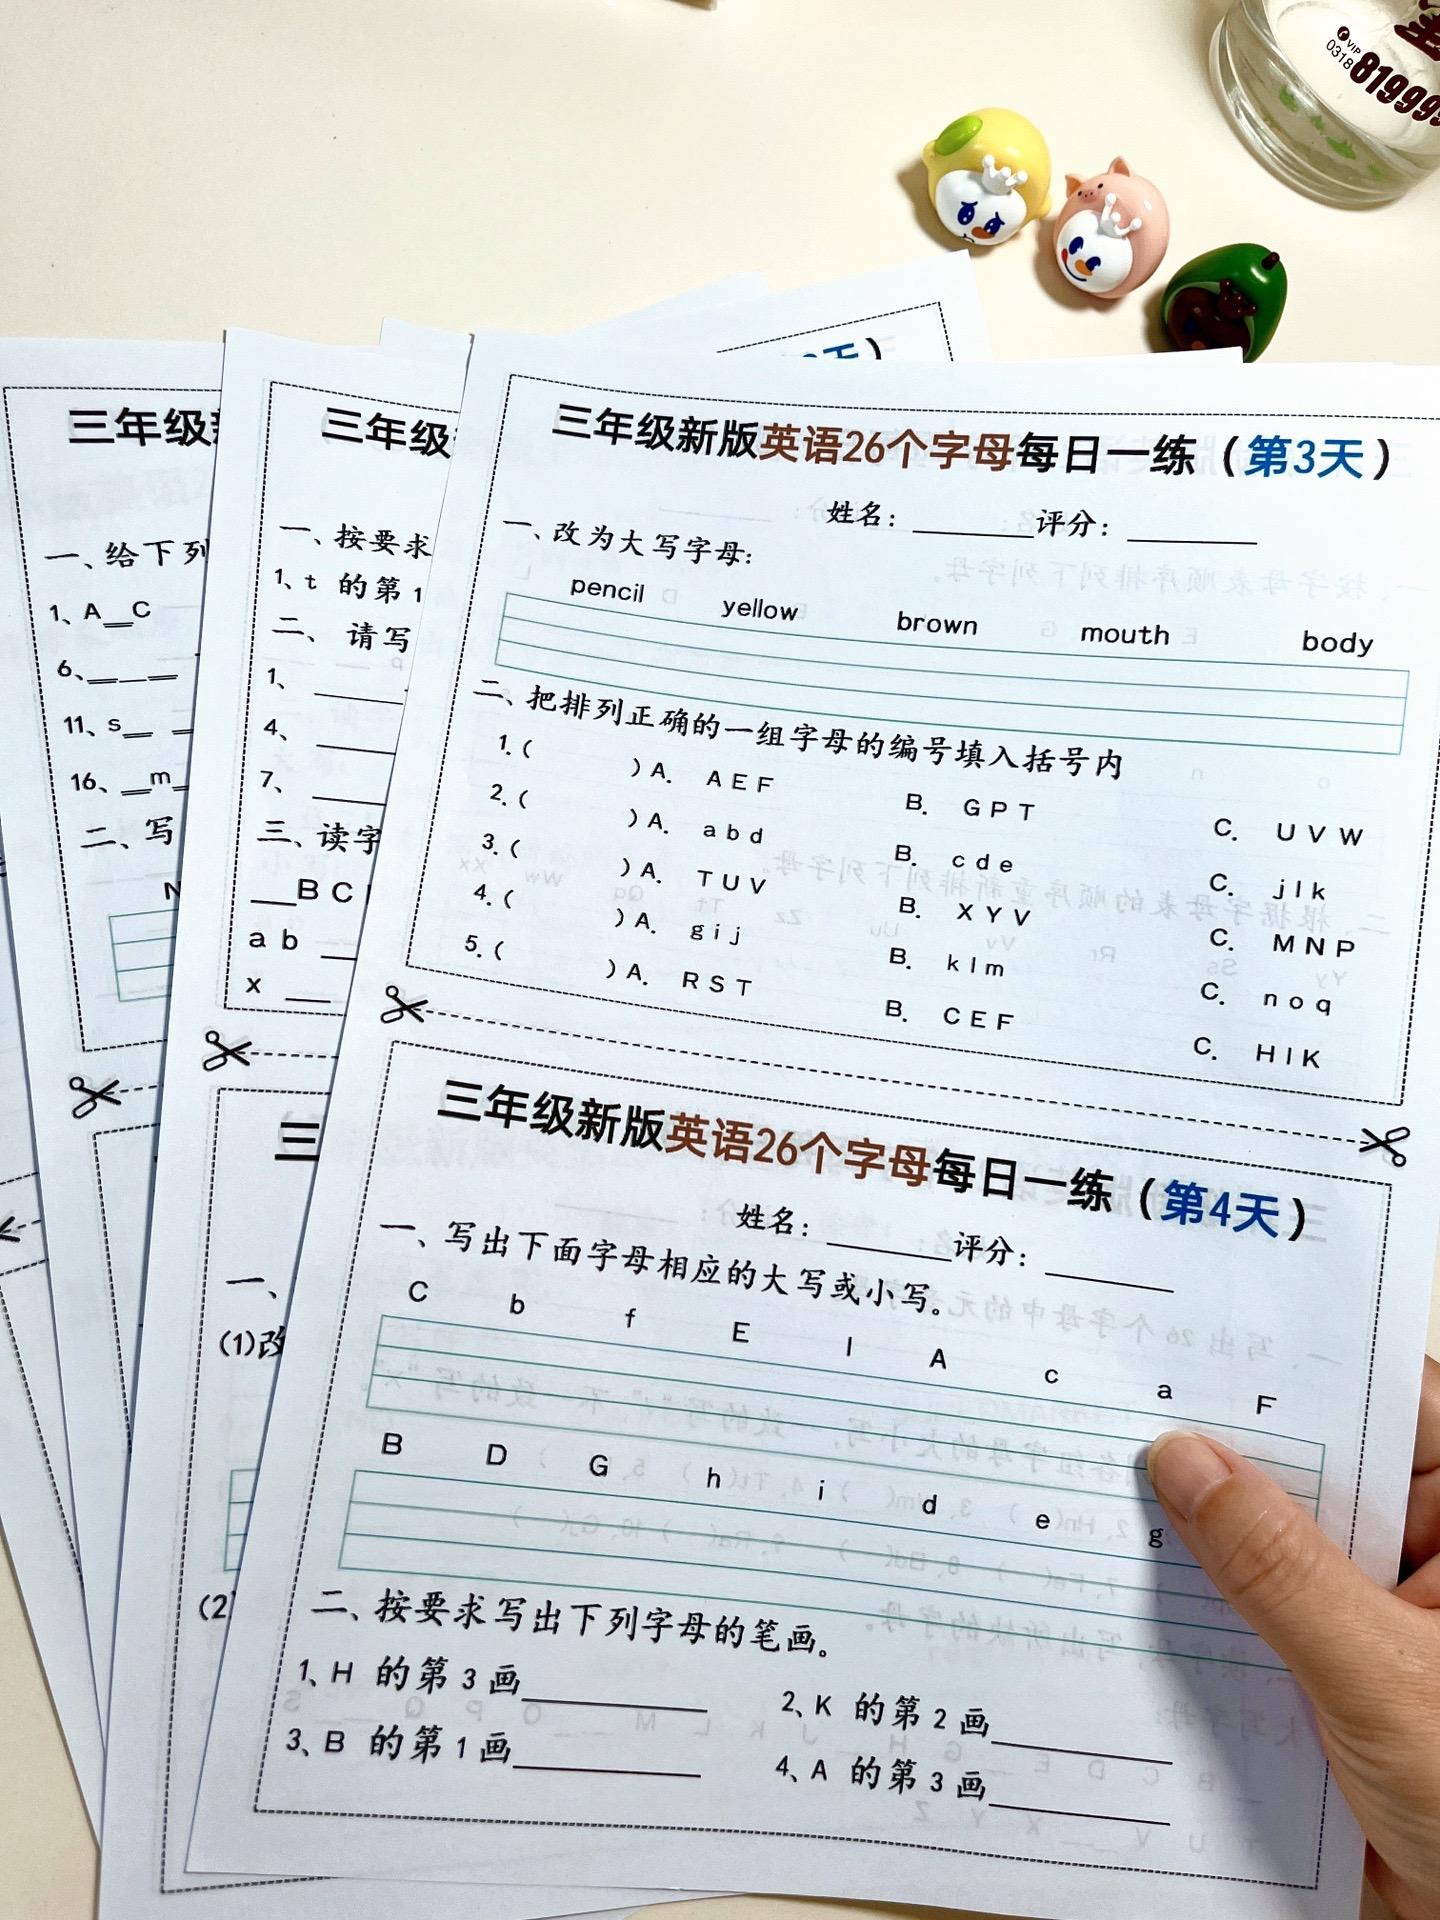 VIP
0318
三年级新版英语26个字母每日一练（第3天）
姓名：______评分：______
一、改为大写字母：
pencil yellow brown mouth body
二、把排列正确的一组字母的编号填入括号内
1.( )A. A E F B. G P T C. U V W
2.( )A. a b d B. c d e C. j l k
3.( )A. T U V B. X Y V C. M N P
4.( )A. g i j B. k l m C. n o q
5.( )A. R S T B. C E F C. H I K
三年级新版英语26个字母每日一练（第4天）
姓名：______评分：______
一、写出下面字母相应的大写或小写。
C b f E l A c a F
B D G h i d e g
二、按要求写出下列字母的笔画。
1、H 的第 3 画______ 2、K 的第 2 画______
3、B 的第 1 画______ 4、A 的第 3 画______
三年级
一、按要求
1、t 的第 1
二、请写
1、______
4、______
7、______
三、读字
__B C
a b __
x __
三
一、
(1)改
(2)
三年级新
一、给下列
1、A__C
6、__ __ __
11、s__ __
16、__m__
二、写
N
天）